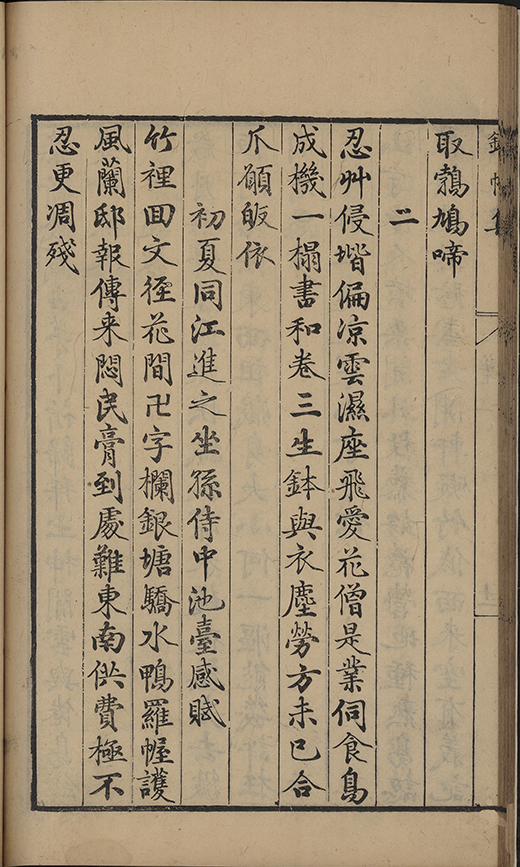 取鵓鳩啼
二
忍艸侵堦偏凉雲濕座飛愛花僧是業伺食鳥
成機一榻書和卷三生鉢與衣塵勞方未已合
爪願皈依
初夏同江進之坐孫侍中池臺感賦
竹裡回文徑花間卍字欄銀塘驕水鴨羅幄護
風蘭邸報傳来悶民膏到處難東南供費極不
忍更凋殘